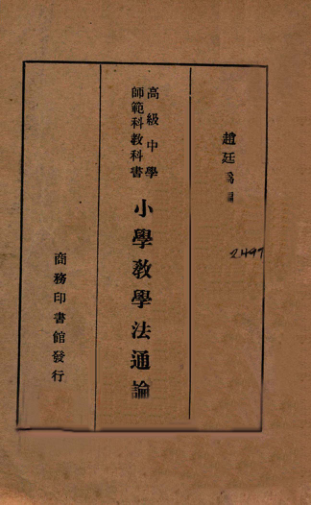 趙廷為
高級中學
師範科教科書
小學教學法通論
商務印書館發行
2497